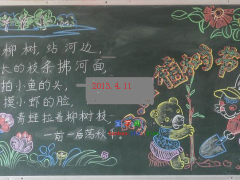 柳树，站河边，
长的枝条拂河面
拍小鱼的头，
摸小虾的脸，
青蛙拉着柳树枝
一前一后荡秋千
植树节
2013.4.11